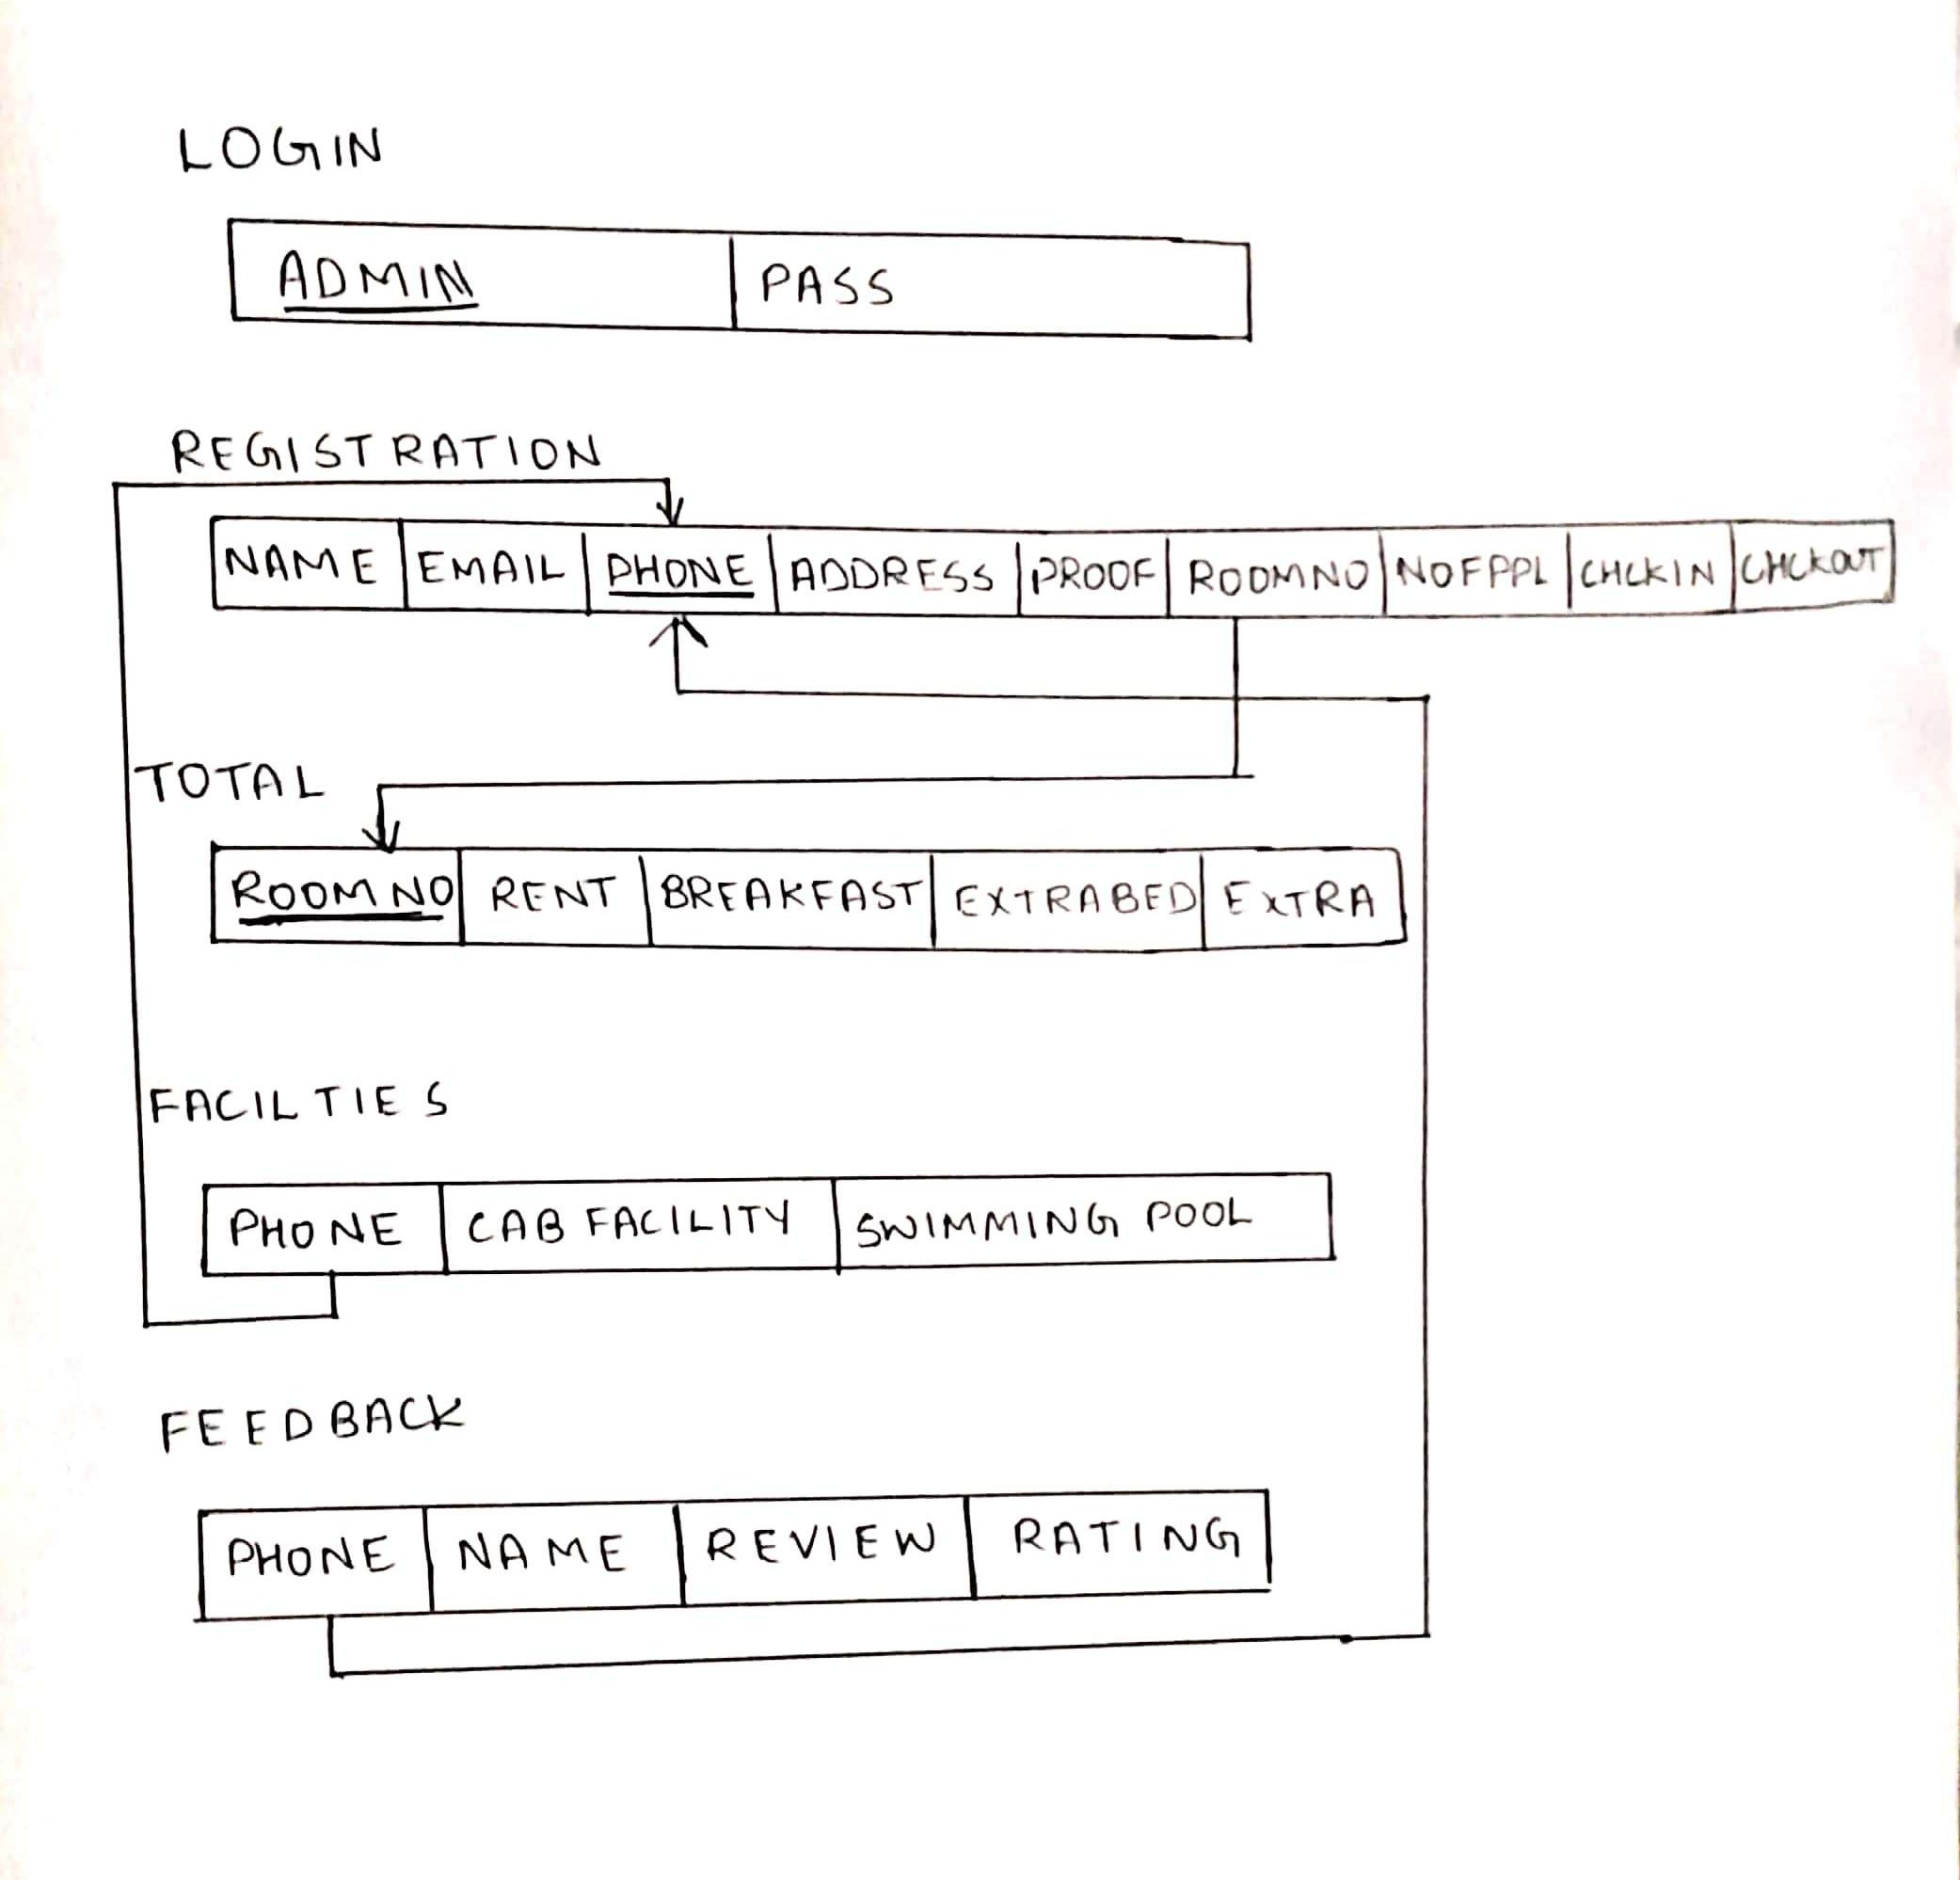 LOGIN
ADMIN PASS
REGISTRATION
NAME EMAIL PHONE ADDRESS PROOF ROOMNO NOFPPL CHCKIN CHCKOUT
TOTAL
ROOMNO RENT BREAKFAST EXTRABED EXTRA
FACILTIES
PHONE CAB FACILITY SWIMMING POOL
FEEDBACK
PHONE NAME REVIEW RATING